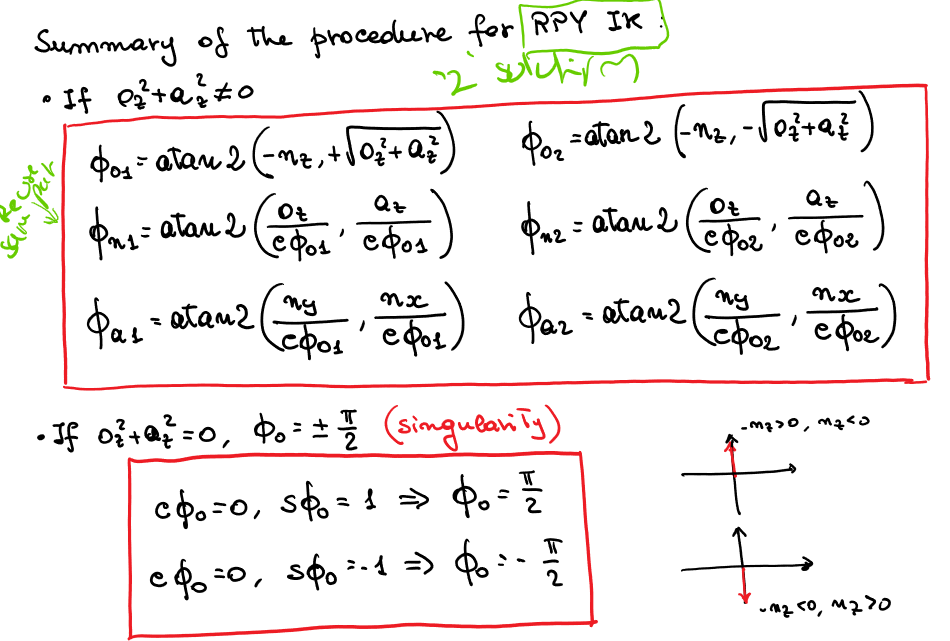 Summary of the procedure for RPY IK:
"2" solution
• If o_z² + a_z² ≠ 0
ϕ_o1 = atan2(-n_z, +√(o_z² + a_z²))    ϕ_o2 = atan2(-n_z, -√(o_z² + a_z²))
ϕ_n1 = atan2(o_z/cϕ_o1, a_z/cϕ_o1)    ϕ_n2 = atan2(o_z/cϕ_o2, a_z/cϕ_o2)
ϕ_a1 = atan2(n_y/cϕ_o1, n_x/cϕ_o1)    ϕ_a2 = atan2(n_y/cϕ_o2, n_x/cϕ_o2)
pair
• If o_z² + a_z² = 0, ϕ_o = ± π/2 (singularity)
-n_z>0, n_z<0
cϕ_o = 0, sϕ_o = 1 ⇒ ϕ_o = π/2
cϕ_o = 0, sϕ_o = -1 ⇒ ϕ_o = - π/2
-n_z<0, n_z>0